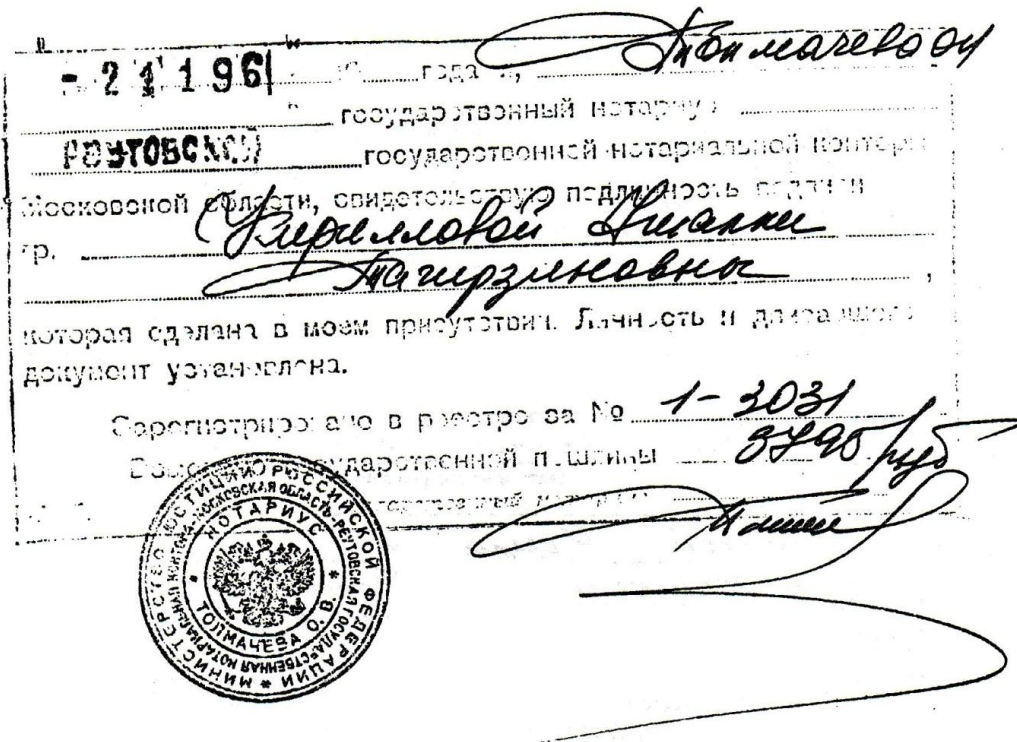 - 2 1 196
года я,
государственный нотариус
РЕУТОВСКОЙ государственной нотариальной конторы
Московской области, свидетельствую подлинность подписи
гр. Кирилловой
Тагирзяновны ,
которая сделана в моем присутствии. Личность и
документ установлена.
Зарегистрировано в реестре за № 1-3031
государственной пошлины 3795 руб
государственный нотариус
МИНИСТЕРСТВО ЮСТИЦИИ РОССИЙСКОЙ ФЕДЕРАЦИИ *
МОСКОВСКАЯ ОБЛАСТЬ РЕУТОВСКАЯ ГОСУДАРСТВЕННАЯ НОТАРИАЛЬНАЯ КОНТОРА
НОТАРИУС
* ТОЛМАЧЕВА О. В. *